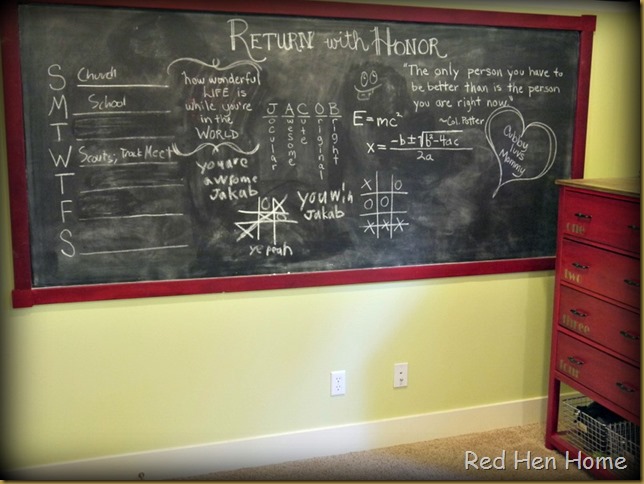 RETURN with HONOR
S Church
M School
T
W Scouts, Track Meet
T
F
S
how wonderful
LIFE is
while you're
in the
WORLD
Jocular
Awesome
Cute
Original
Bright
you are
awsome
Jakab
you win
Jakab
ye yeah
E=mc²
x = -b±√b²-4ac
2a
"The only person you have to
be better than is the person
you are right now."
~Col. Potter
Cubby
luvs
Mommy
X O
O O
X X X
one
two
three
four
Red Hen Home